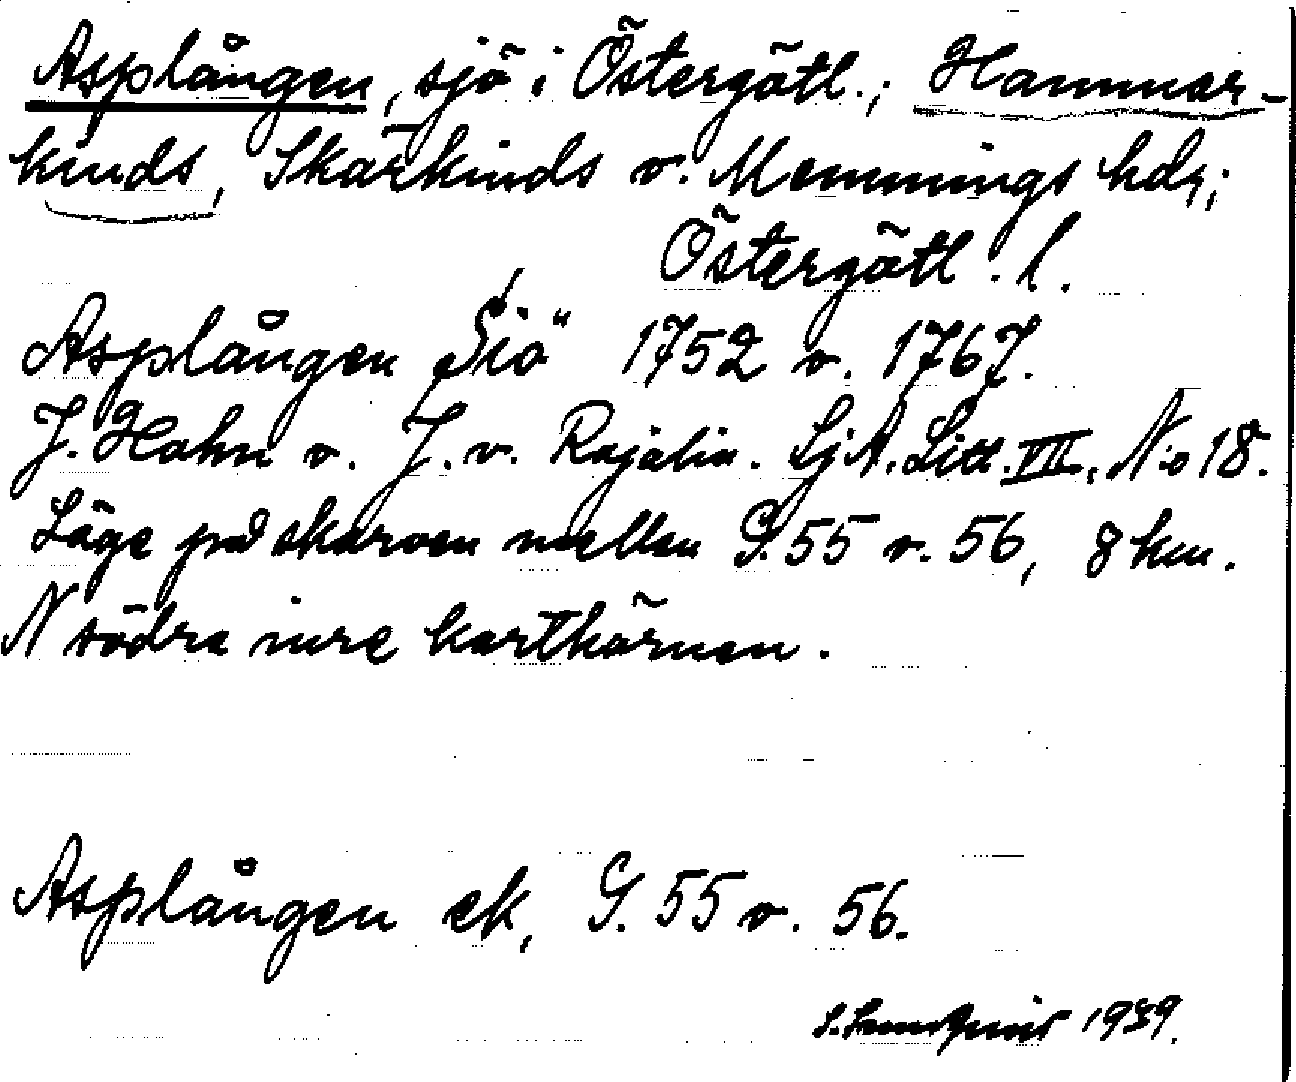 Asplången, sjö i Östergötl.; Hammar-
kinds, Skärkinds o. Memmings hdr;
Östergötl. l.
Asplången Siö 1752 o. 1767.
J. Hahn o. J. v. Rajalin. Sj A. Litt. VII, No 18.
Läge på skarven mellan G. 55 o. 56, 8 km.
N södra inre karthörnen.
Asplången ek, G. 55 o. 56.
S. 1939.